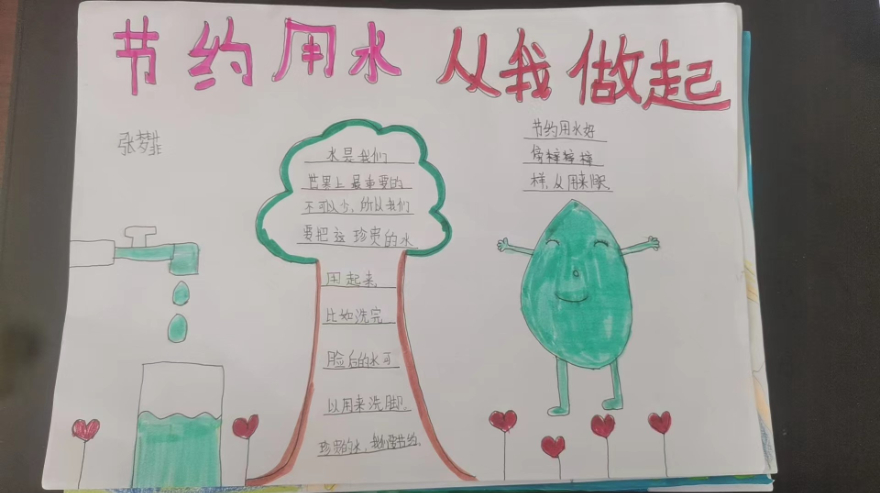 节约用水 从我做起
张梦
水是我们
世界上最重要的
不可以少，所以我们
要把这珍贵的水
用起来
比如洗完
脸后的水可
以用来洗脚，
珍贵的水，节约。
节约用水好
样，从用来